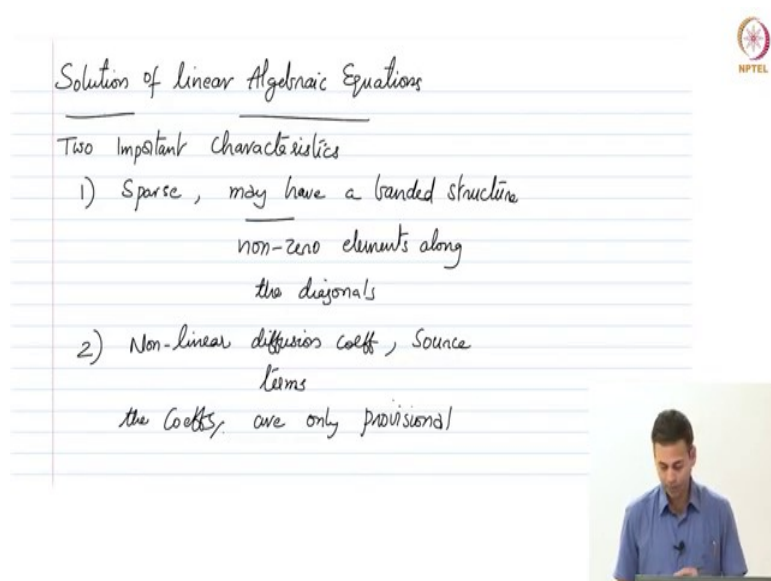 NPTEL
Solution of linear Algebraic Equations
Two Important Characteristics
1) Sparse, may have a banded structure
non-zero elements along
the diagonals
2) Non-linear diffusion coeff, Source
terms
the Coeffs, are only provisional